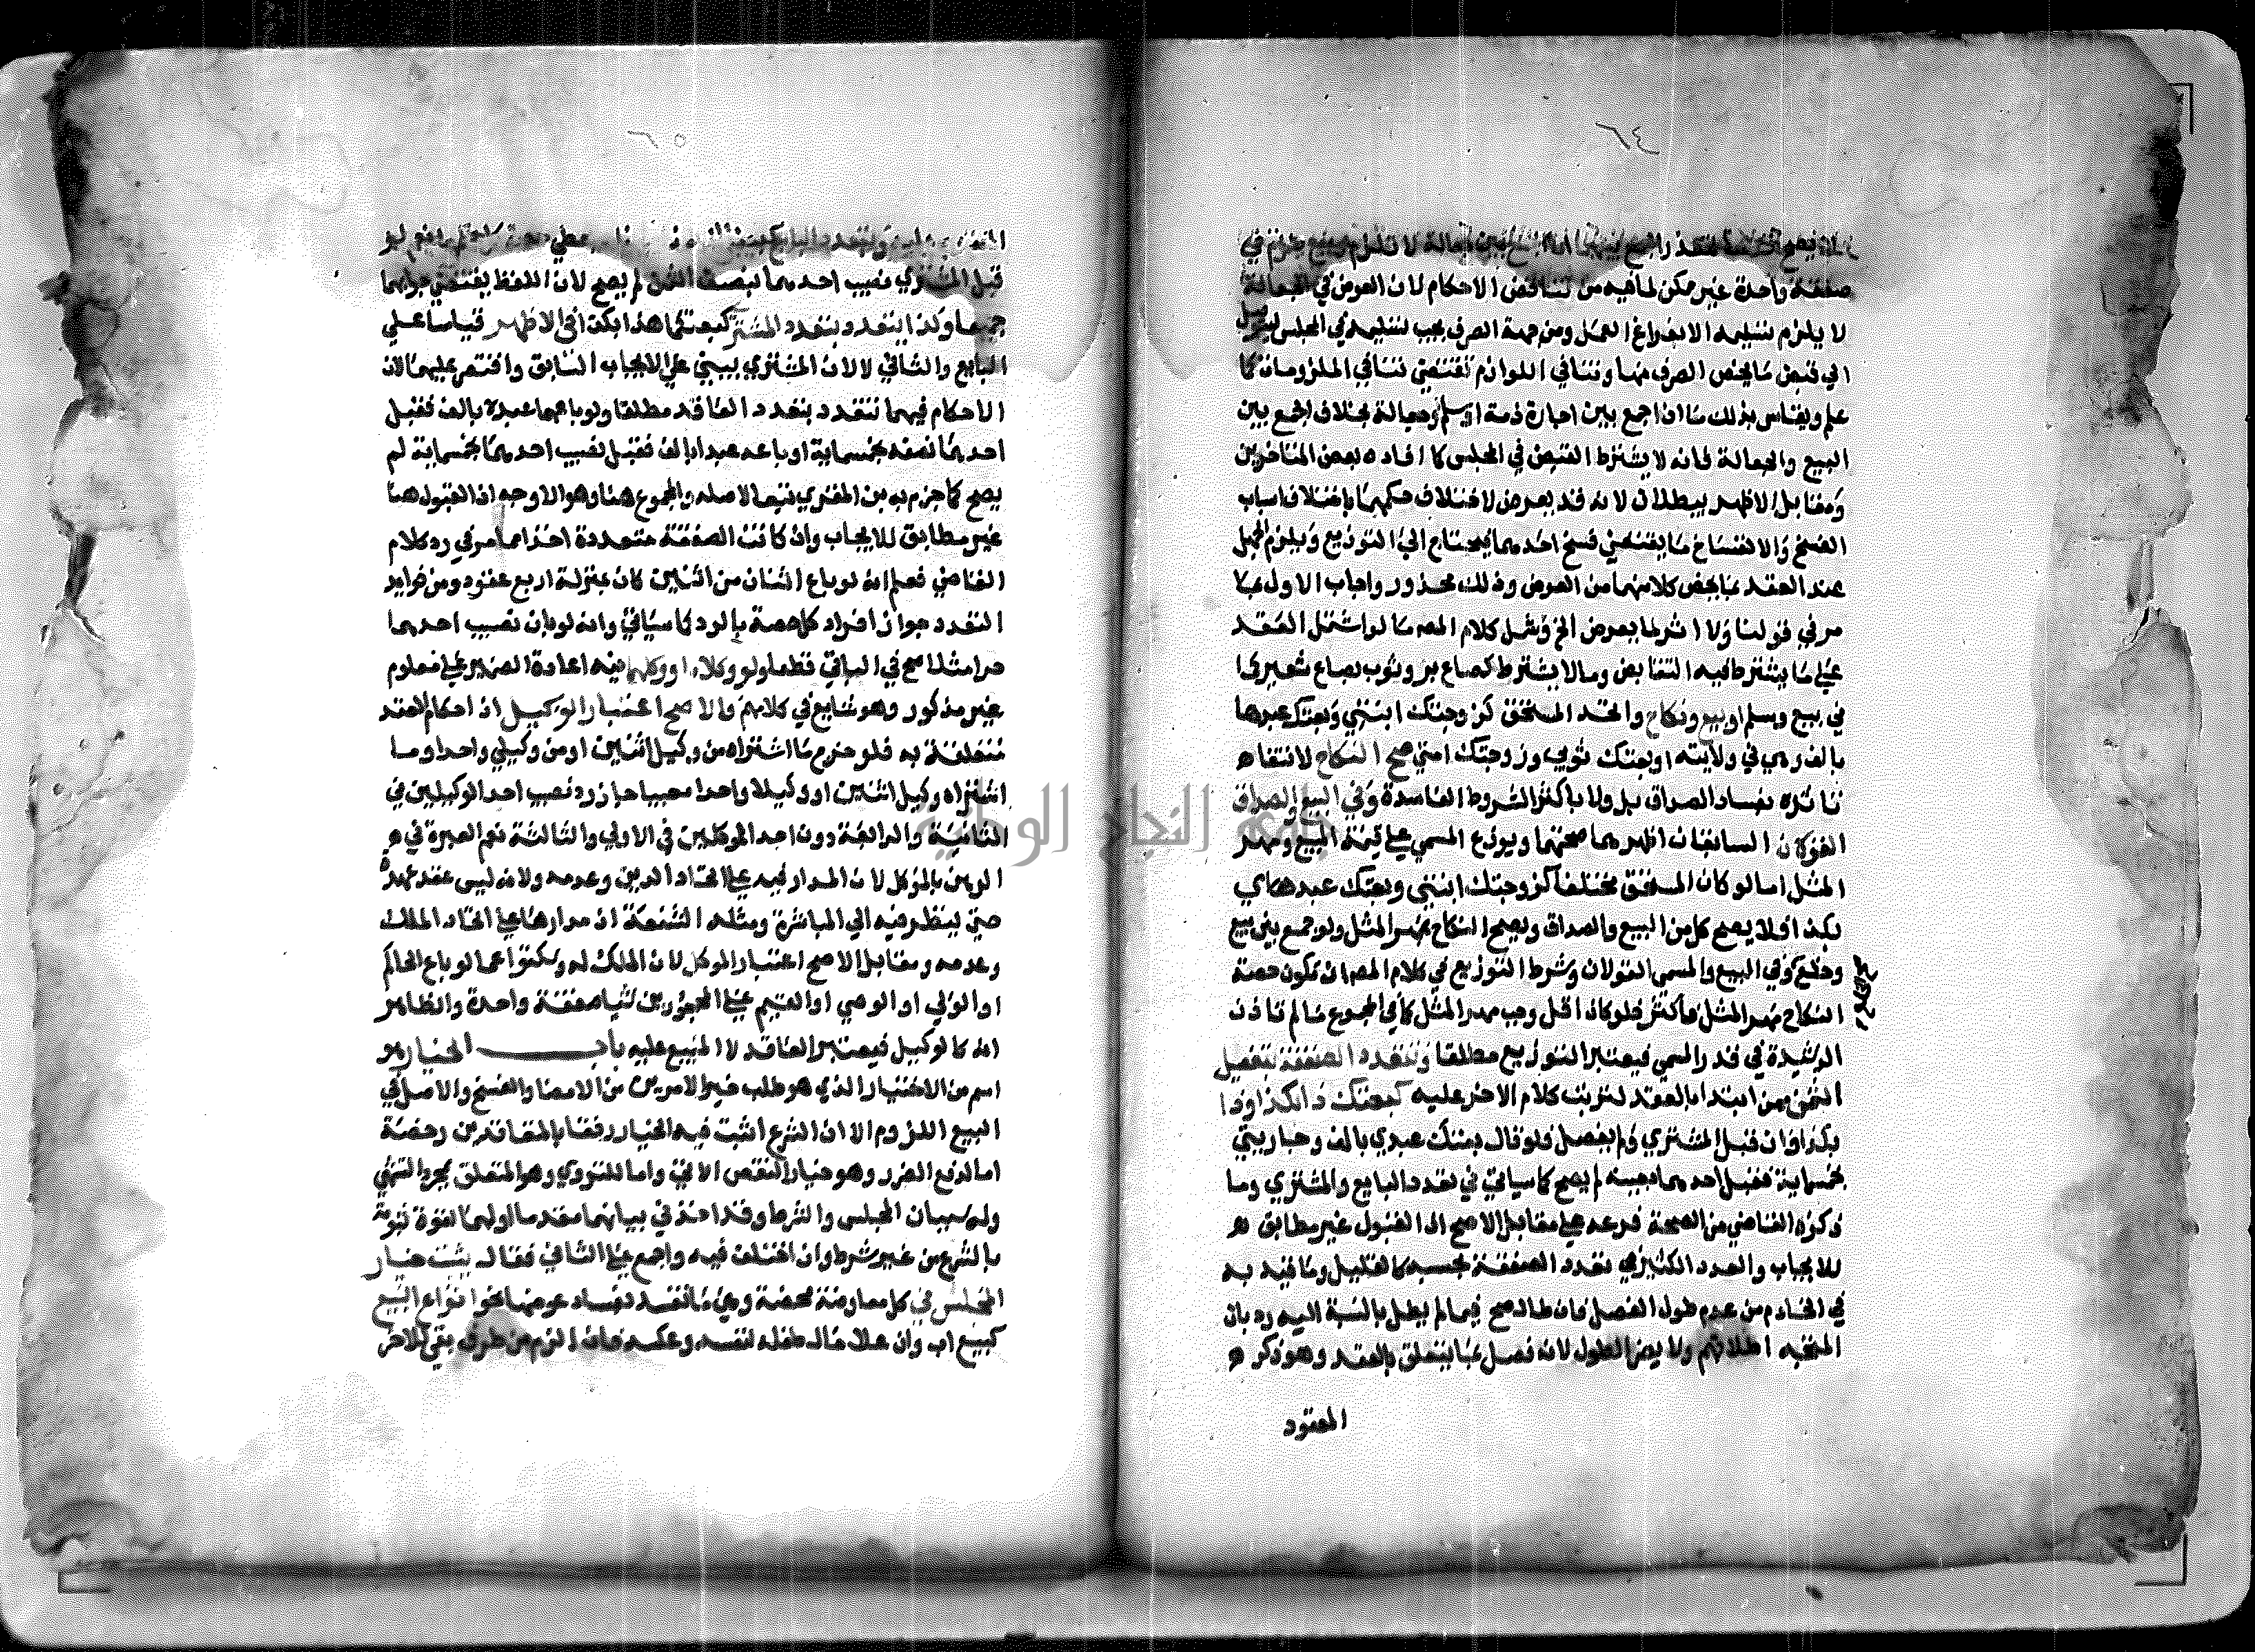 ٦٤
صفقة واحدة غير ممكن لما فيه من تناقض الاحكام لان العوض في الجعالة
لا يلزم تسليمه الا بفراغ العمل ومن جهة الصرف يجب تسليمه في المجلس ليتوصل
الي قبض ما يخص الصرف منها وتنافي اللوازم تقتضي تنافي الملزومات كما
علم ويقاس بذلك ما اذا جمع بين اجارة ذمة او سلم وجعالة بخلاف الجمع بين
البيع والجعالة فانه لا يشترط القبض في المجلس كما افاده بعض المتاخرين
ومقابل الاظهر يبطلان لانه قد يعرض لاختلاف حكمهما باختلاف اسباب
الفسخ والانفساخ ما يقتضي فسخ احدهما فيحتاج الي التوزيع ويلزم الجهل
عند العقد بما يخص كلا منهما من العوض وذلك محذور واجاب الاول بما
مر في قولنا ولا اثر لما يعرض الخ وشمل كلام المص ما لو اشتمل العقد
علي ما يشترط فيه التقابض وما لا يشترط كصاع بر وثوب بصاع شعير كما
في بيع وسلم او بيع ونكاح والحتد المستحق كزوجتك ابنتي وبعتك عبدها
بالف وهي في ولايته او بعتك ثوبي وزوجتك امتي صح النكاح لانتفاء
تاثره بفساد الصداق بل ولا باكثر الشروط الفاسدة وفي البيع والصداق
القولان السابقان اظهرهما صحتهما ويوزع المسمي علي قيمة المبيع ومهر
المثل اما لو كان المستحق مختلفا كزوجتك ابنتي وبعتك عبدي
بكذا فلا يصح كل من البيع والصداق ويصح النكاح بمهر المثل ولو جمع بين بيع
وخلع وفي البيع والمسمي القولان وشرط التوزيع في كلام المص ان تكون حصة
النكاح مهر المثل فاكثر فلو كان اقل وجب مهر المثل كما في المجموع ما لم تاذن
الرشيدة في قدر المسمي فيعتبر التوزيع مطلقا وتتعدد الصفقة بتفصيل
الثمن ممن ابتدا بالعقد لترتب كلام الاخر عليه كبعتك ذا بكذا وذا
بكذا وان قبل المشتري ولم يفصل فلو قال بعتك عبدي بالف وجاريتي
بخمسماية فقبل احدهما بعينه لم يصح كما سياتي في تعدد البايع والمشتري وما
ذكره القاضي من الصحة فرعه علي مقابل الاصح اذ القبول غير مطابق
للايجاب والعدد الكثير في تعدد الصفقة بحسبه كالقليل وما قيد به
في الخادم من عدم طول الفصل فان طال صح فيما لم يطل بالنسبة اليه رد بان
المتجه اطلاقهم ولا يضر الطول لانه فصل بما يتعلق بالعقد وهو ذكر
المعقود
٦٥
قبل المشتري نصيب احدهما بنصف الثمن لم يصح لان اللفظ يقتضي جوابهما
جميعا وكذا يتعدد بتعدد المشتري كبعتكما هذا بكذا في الاظهر قياسا علي
البايع والثاني لا لان المشتري يبني علي الايجاب السابق واقتصر عليهما لان
الاحكام فيهما تتعدد بتعدد العاقد مطلقا ولو باعهما عبده بالف فقبل
احدهما نصفه بخمسماية او باعه عبدا بالف فقبل نصيب احدهما بخمسماية لم
يصح كما جزم به بن المقري تبعا لاصله والمجموع هنا وهو الاوجه اذ القبول هنا
غير مطابق للايجاب وان كانت الصفقة متعددة اخذا مما مر في رد كلام
القاضي فعلم انه لو باع اثنان من اثنين كان بمنزلة اربع عقود ومن فوايد
التعدد جواز افراد كل حصة بالرد كما سياتي وانه لو بان نصيب احدهما
حرا مثلا صح في الباقي قطعا ولو وكلاه او وكلهما فيه اعادة الضمير علي معلوم
غير مذكور وهو شايع في كلامهم فالاصح اعتبار الوكيل اذ احكام العقد
متعلقة به فلو خرج ما اشتراه من وكيل اثنين او من وكيلي واحد او ما
اشتراه وكيل اثنين او وكيلا واحد معيبا جاز رد نصيب احد الوكيلين في
الثانية والرابعة دون احد الموكلين في الاولي والثالثة نعم العبرة في
الرهن بالموكل لان المدار فيه علي اتحاد الدين وعدمه ولانه ليس عقد عهدة
حتي ينظر فيه الي المباشرة ومثله الشفعة اذ مدارها علي اتحاد الملك
وعدمه ومقابل الاصح اعتبار الموكل لان الملك له وسكتوا عما لو باع الحاكم
او الولي او الوصي او القيم علي المحجورين شيا صفقة واحدة والظاهر
انه كالوكيل فيعتبر العاقد لا المبيع عليه باب الخيار هو
اسم من الاختيار الذي هو طلب خير الامرين من الامضا والفسخ والاصل في
البيع اللزوم الا ان الشرع اثبت فيه الخيار رفقا بالمتعاقدين رخصة
اما لدفع الضرر وهو خيار النقص الاتي واما للتروي وهو المتعلق بمجرد التشهي
وله سببان المجلس والشرط وقد اخذ في بيانهما مقدما اولهما لقوة ثبوته
بالشرع من غير شرط وان اختلف فيه واجمع علي الثاني فقال يثبت خيار
المجلس في كل معاوضة محضة وهي ما تفسد بفساد عوضها نحو انواع البيع
كبيع اب وان علا مال طفله لنفسه وعكسه فان الزم من طرف بقي للاخر